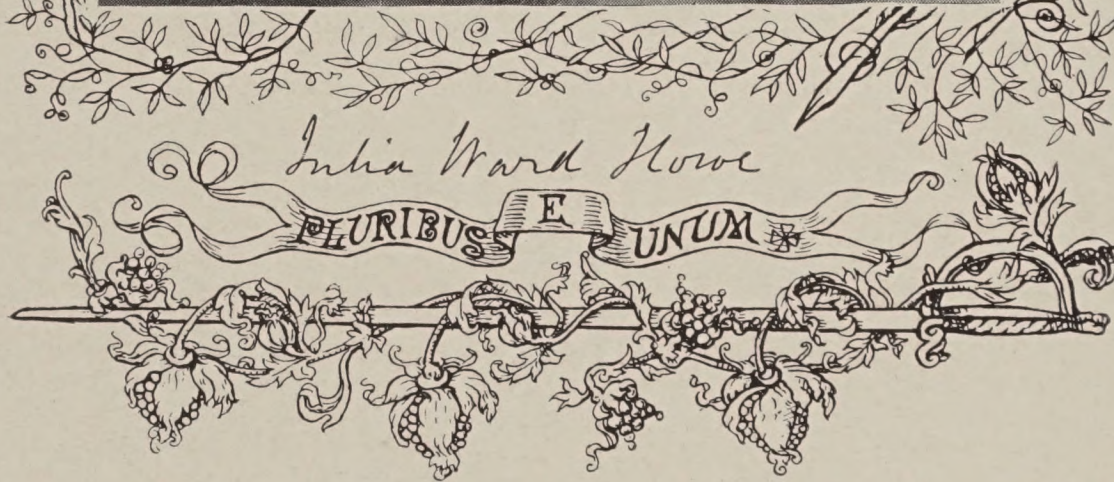 Julia Ward Howe
PLURIBUS E UNUM